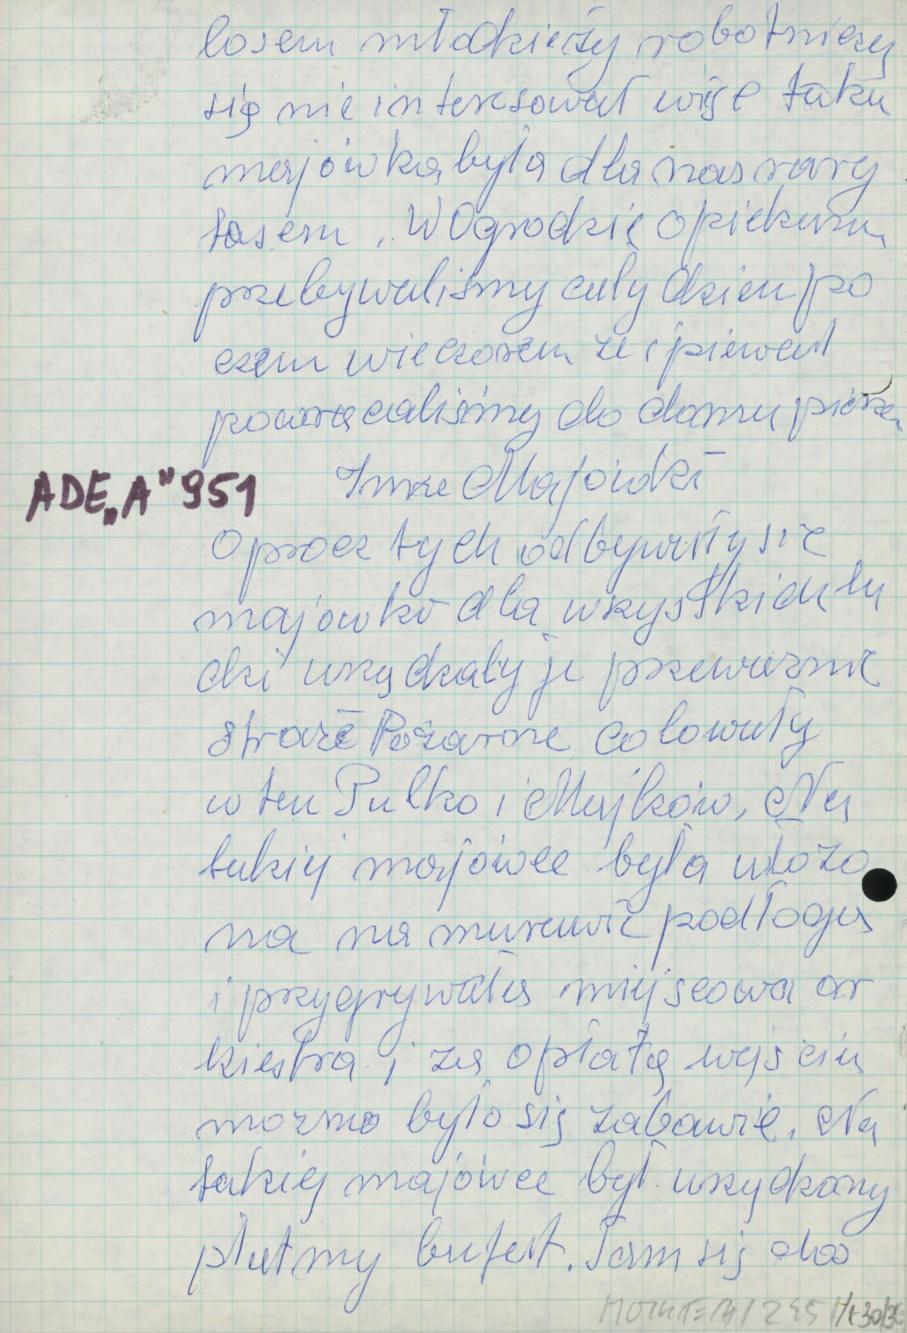 losem młodzieży robotniczy
się nie interesował więc taka
majówka była dla nas rary
tasem. W Ogrodzie opiekuna
przebywaliśmy cały dzień po
czem wieczorem ze śpiewem
powracaliśmy do domu
Inne Majówki
Oprocz tych odbywały się
majówki dla wszystkich lu
dzi urządzały je przeważnie
straże Pożarne, celowały
w tem Pulko i Majków, Na
takiej majówce była ułożo
na na murawie podłoga
i przygrywała miejscowa or
kiestra i za opłatą wejścia
można było się zabawić. Na
takiej majówce był urządzony
płatny bufet. Tam się
ADE„A" 951